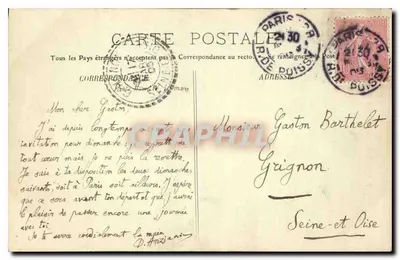 CARTE POSTALE
Tous les Pays étrangers n'acceptent pas la Correspondance au recto
CORRESPONDANCE
ADRESSE
PARIS
2130
R. DE POISSY
PARIS
2130
R. DE POISSY
Mon cher Gaston
J'ai depuis longtemps
invitation pour dimanche
tout cœur mais je ne puis la
Je suis à ta disposition les deux dimanches
suivants, soit à Paris soit ailleurs. J'espère
que ce sera avant ton départ et que j'aurai
le plaisir de passer encore une journée
avec toi.
Je te serre cordialement la main
Monsieur Gaston Barthelet
Grignon
Seine-et-Oise
PRCartes.com